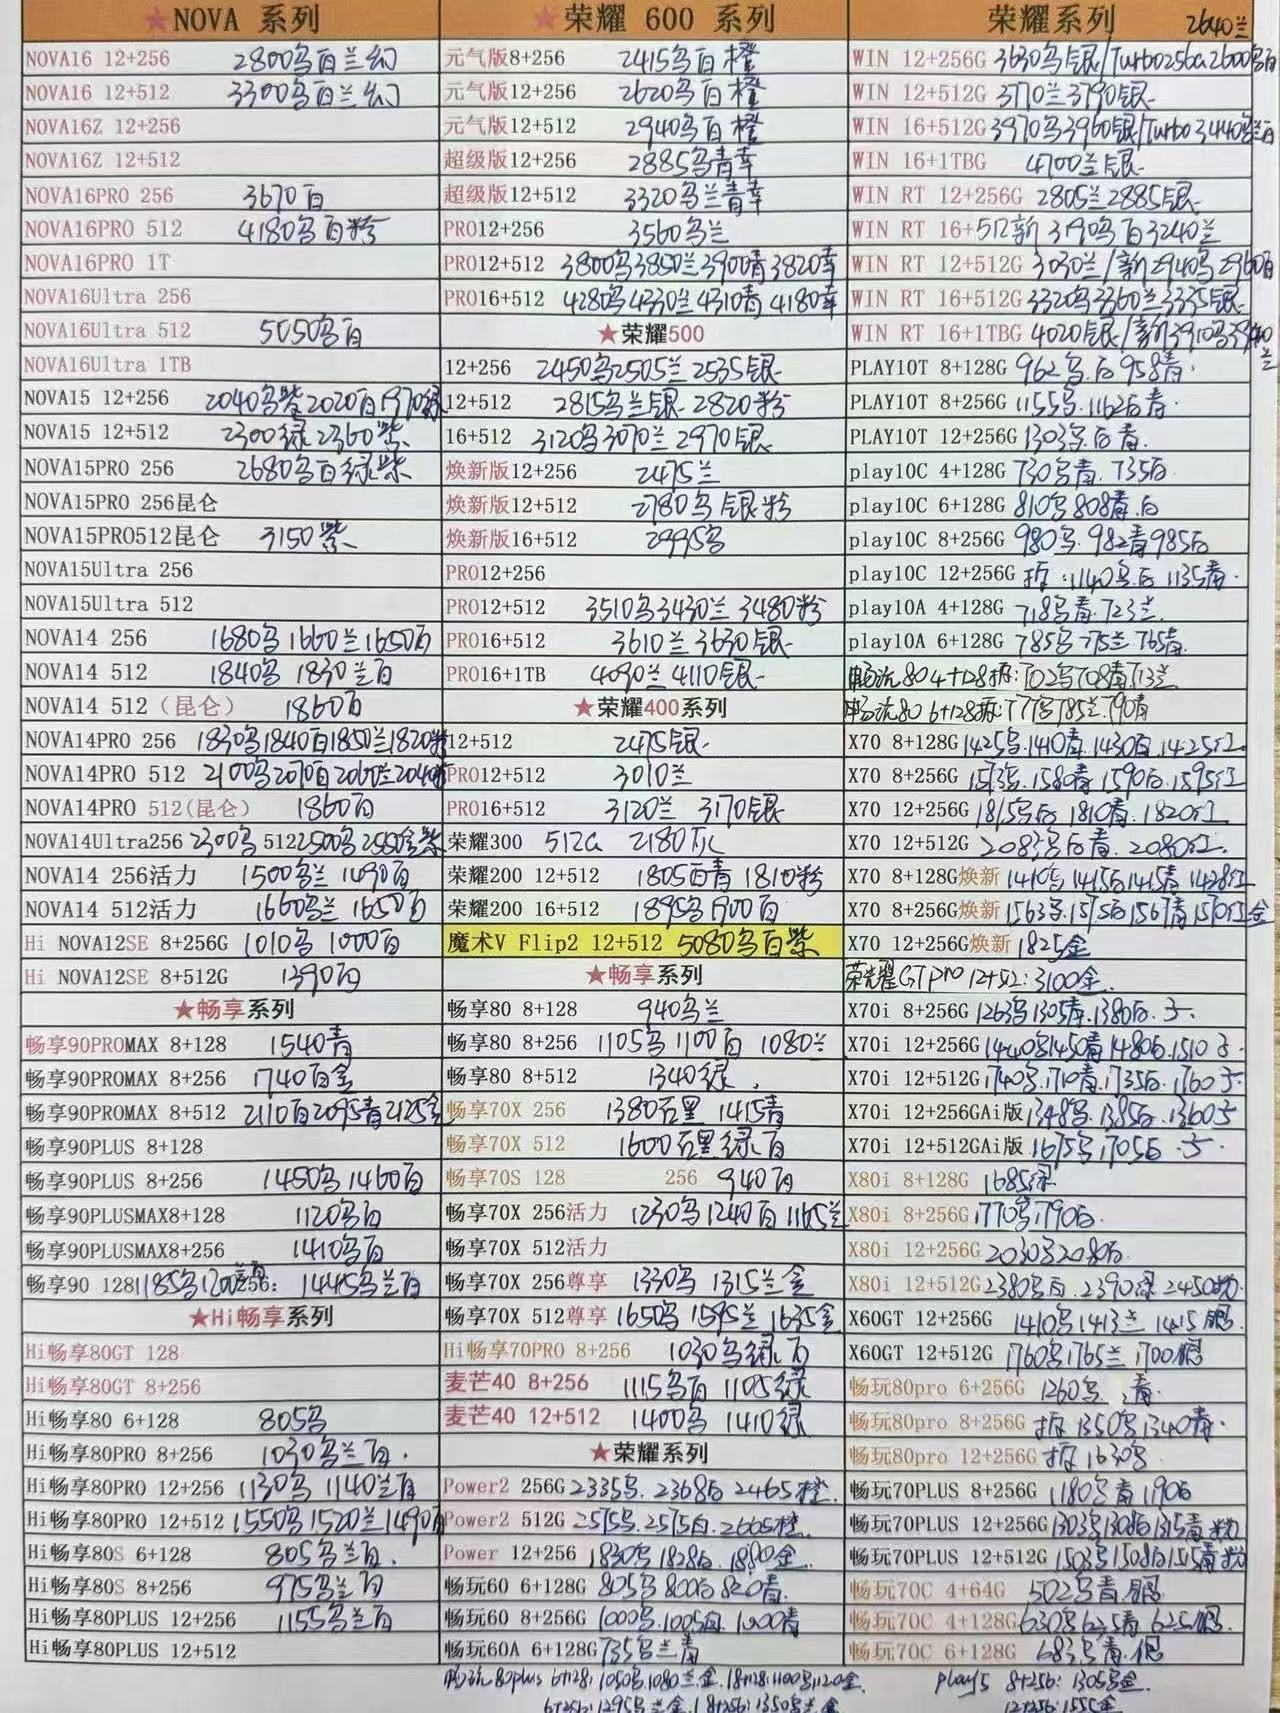 ★NOVA 系列
NOVA16 12+256 2800乌白兰幻
NOVA16 12+512 3300乌白兰幻
NOVA16Z 12+256
NOVA16Z 12+512
NOVA16PRO 256 3670白
NOVA16PRO 512 4180乌白粉
NOVA16PRO 1T
NOVA16Ultra 256
NOVA16Ultra 512 5050乌白
NOVA16Ultra 1TB
NOVA15 12+256 2040乌紫2020白1970绿
NOVA15 12+512 2300绿2360紫
NOVA15PRO 256 2680乌白绿紫
NOVA15PRO 256昆仑
NOVA15PRO512昆仑 3150紫
NOVA15Ultra 256
NOVA15Ultra 512
NOVA14 256 1680乌1660兰1650白
NOVA14 512 1840乌 1830兰白
NOVA14 512（昆仑） 1860白
NOVA14PRO 256 1830乌1840白1850兰1820粉
NOVA14PRO 512 2100乌2070白2060兰2040粉
NOVA14PRO 512(昆仑) 1860白
NOVA14Ultra256 2300乌 512 2500乌2550金紫
NOVA14 256活力 1500乌兰 1490白
NOVA14 512活力 1660乌兰 1650白
Hi NOVA12SE 8+256G 1010乌 1000白
Hi NOVA12SE 8+512G 1390白
★畅享系列
畅享90PROMAX 8+128 1540青
畅享90PROMAX 8+256 1740白金
畅享90PROMAX 8+512 2110白2095青2125金
畅享90PLUS 8+128
畅享90PLUS 8+256 1450乌1460白
畅享90PLUSMAX8+128 1120乌白
畅享90PLUSMAX8+256 1410乌白
畅享90 128 1185乌1200兰白 256: 1445乌兰白
★Hi畅享系列
Hi畅享80GT 128
Hi畅享80GT 8+256
Hi畅享80 6+128 805乌
Hi畅享80PRO 8+256 1030乌兰白.
Hi畅享80PRO 12+256 1130乌 1140兰白
Hi畅享80PRO 12+512 1550乌1520兰1490白
Hi畅享80S 6+128 805乌兰白.
Hi畅享80S 8+256 975乌兰白
Hi畅享80PLUS 12+256 1155乌兰白
Hi畅享80PLUS 12+512
★荣耀 600 系列
元气版8+256 2415乌白橙
元气版12+256 2620乌白橙
元气版12+512 2940乌白橙
超级版12+256 2885乌青幸
超级版12+512 3320乌兰青幸
PRO12+256 3560乌兰
PRO12+512 3800乌3850兰3900青3820幸
PRO16+512 4280乌4330兰4310青4180幸
★荣耀500
12+256 2450乌2505兰2535银
12+512 2815乌兰银 2820粉
16+512 3120乌3070兰2970银
焕新版12+256 2475兰
焕新版12+512 2780乌银粉
焕新版16+512 2995乌
PRO12+256
PRO12+512 3510乌3430兰3480粉
PRO16+512 3610兰3630银
PRO16+1TB 4090兰4110银
★荣耀400系列
12+512 2475银
PRO12+512 3010兰
PRO16+512 3120兰 3170银
荣耀300 512G 2180灰
荣耀200 12+512 1805白青1810粉
荣耀200 16+512 1895乌1900白
魔术V Flip2 12+512 5080乌白紫
★畅享系列
畅享80 8+128 940乌兰
畅享80 8+256 1105乌1100白 1080兰
畅享80 8+512 1340绿
畅享70X 256 1380石墨 1415青
畅享70X 512 1600石墨绿白
畅享70S 128 256 940白
畅享70X 256活力 1230乌1240白1165兰
畅享70X 512活力
畅享70X 256尊享 1330乌 1315兰金
畅享70X 512尊享 1650乌1595兰1635金
Hi畅享70PRO 8+256 1030乌绿白
麦芒40 8+256 1115乌白1105绿
麦芒40 12+512 1400乌1410绿
★荣耀系列
Power2 256G 2335乌.2368白2465橙.
Power2 512G 2575乌.2575白.2665橙.
Power 12+256 1830乌1828白.1880金.
畅玩60 6+128G 805乌800白820青.
畅玩60 8+256G 1000乌.1005白.1000青
畅玩60A 6+128G 735乌兰青
畅玩80plus 6+128:1050乌.1080兰.金. 18+128:1100乌1120金.
6+256:1295乌兰金. 18+256:1350乌兰金
荣耀系列 2640兰
WIN 12+256G 3630乌银/Turbo256G2600乌白
WIN 12+512G 3770兰3790银
WIN 16+512G 3970乌3960银/Turbo3440乌兰白
WIN 16+1TBG 4700兰银
WIN RT 12+256G 2805兰2885银
WIN RT 16+512新 3190乌白3240兰
WIN RT 12+512G 3030兰/新2940乌2960白
WIN RT 16+512G 3320乌3360兰3335银
WIN RT 16+1TBG 4020银/新3910乌3940兰
PLAY10T 8+128G 962乌.白958青.
PLAY10T 8+256G 1155乌.1162白青.
PLAY10T 12+256G 1303乌.白青.
play10C 4+128G 730乌青.735白
play10C 6+128G 810乌808青.白
play10C 8+256G 980乌.982青985白
play10C 12+256G 拆:1140乌.白1135青.
play10A 4+128G 718乌青.723兰
play10A 6+128G 785乌775兰765青.
畅玩80 4+128拆:702乌708青713兰
畅玩80 6+128拆:777乌785兰790青
X70 8+128G 1425乌.1410青.1430白.1425红
X70 8+256G 1573乌.1580青1590白.1595红
X70 12+256G 1815乌白.1810青.1820红
X70 12+512G 2083乌白青.2080红.
X70 8+128G焕新 1410乌1415白1415青1428红
X70 8+256G焕新 1563乌.1575白1567青1570红金
X70 12+256G焕新 1825金
荣耀GTpro 12+512:3100金.
X70i 8+256G 1263乌1305青.1380白.子.
X70i 12+256G 1440乌1450青1480白.1510子.
X70i 12+512G 1740乌.1710青.1735白.1760子.
X70i 12+256GAi版 1348乌.1385白.1360子
X70i 12+512GAi版 1675乌1705白.子.
X80i 8+128G 1685绿
X80i 8+256G 1770乌1790白.
X80i 12+256G 2030乌2080白.
X80i 12+512G 2380乌白.2390绿2450粉.
X60GT 12+256G 1410乌1413兰1415银.
X60GT 12+512G 1760乌1765兰1700银
畅玩80pro 6+256G 1260乌.青.
畅玩80pro 8+256G 拆1350乌1340青.
畅玩80pro 12+256G 拆1630乌
畅玩70PLUS 8+256G 1180乌青1190白
畅玩70PLUS 12+256G 1303乌1308白1315青.粉
畅玩70PLUS 12+512G 1503乌1508白1515青粉
畅玩70C 4+64G 502乌青.银.
畅玩70C 4+128G 630乌625青625银.
畅玩70C 6+128G 683乌青.银
play5 8+256:1305乌金.
12+256:1555金